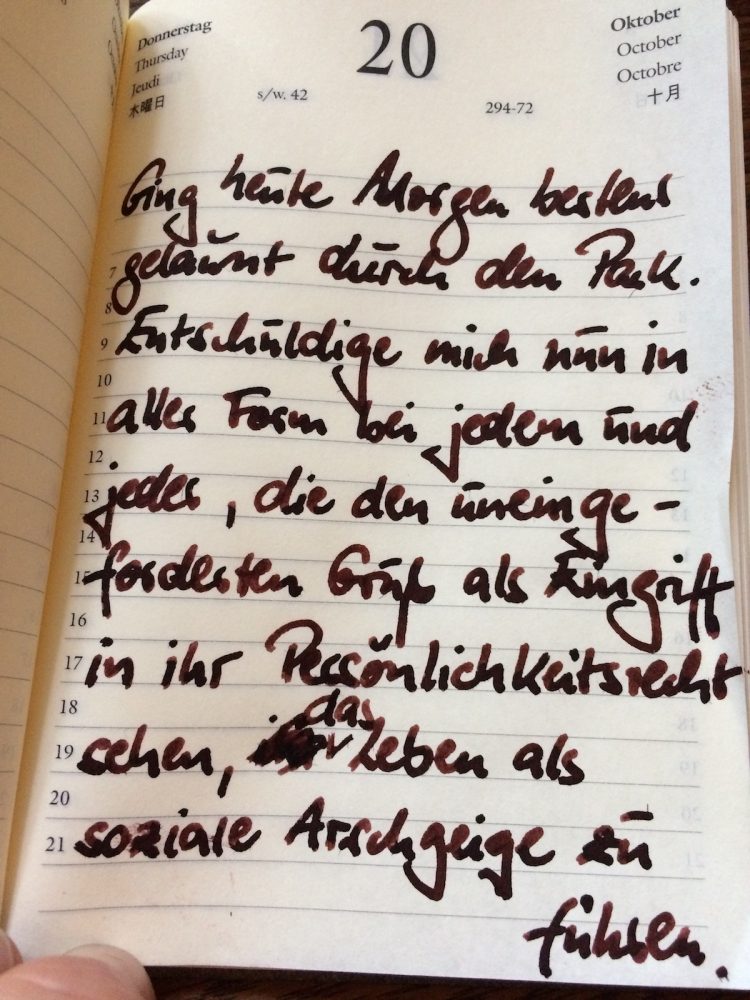 Donnerstag
Thursday
Jeudi
木曜日
s/w. 42
20
294-72
Oktober
October
Octobre
十月
Ging heute Morgen bestens
7 gelaunt durch den Park.
8
9 Entschuldige mich nun in
10
11 aller Form bei jedem und
12
13 jeder, die den uneinge-
14
15 forderten Gruß als Eingriff
16
17 in ihr Persönlichkeitsrecht
18
das
19 sehen, Leben als
20
21 soziale Arschgeige zu
führen.